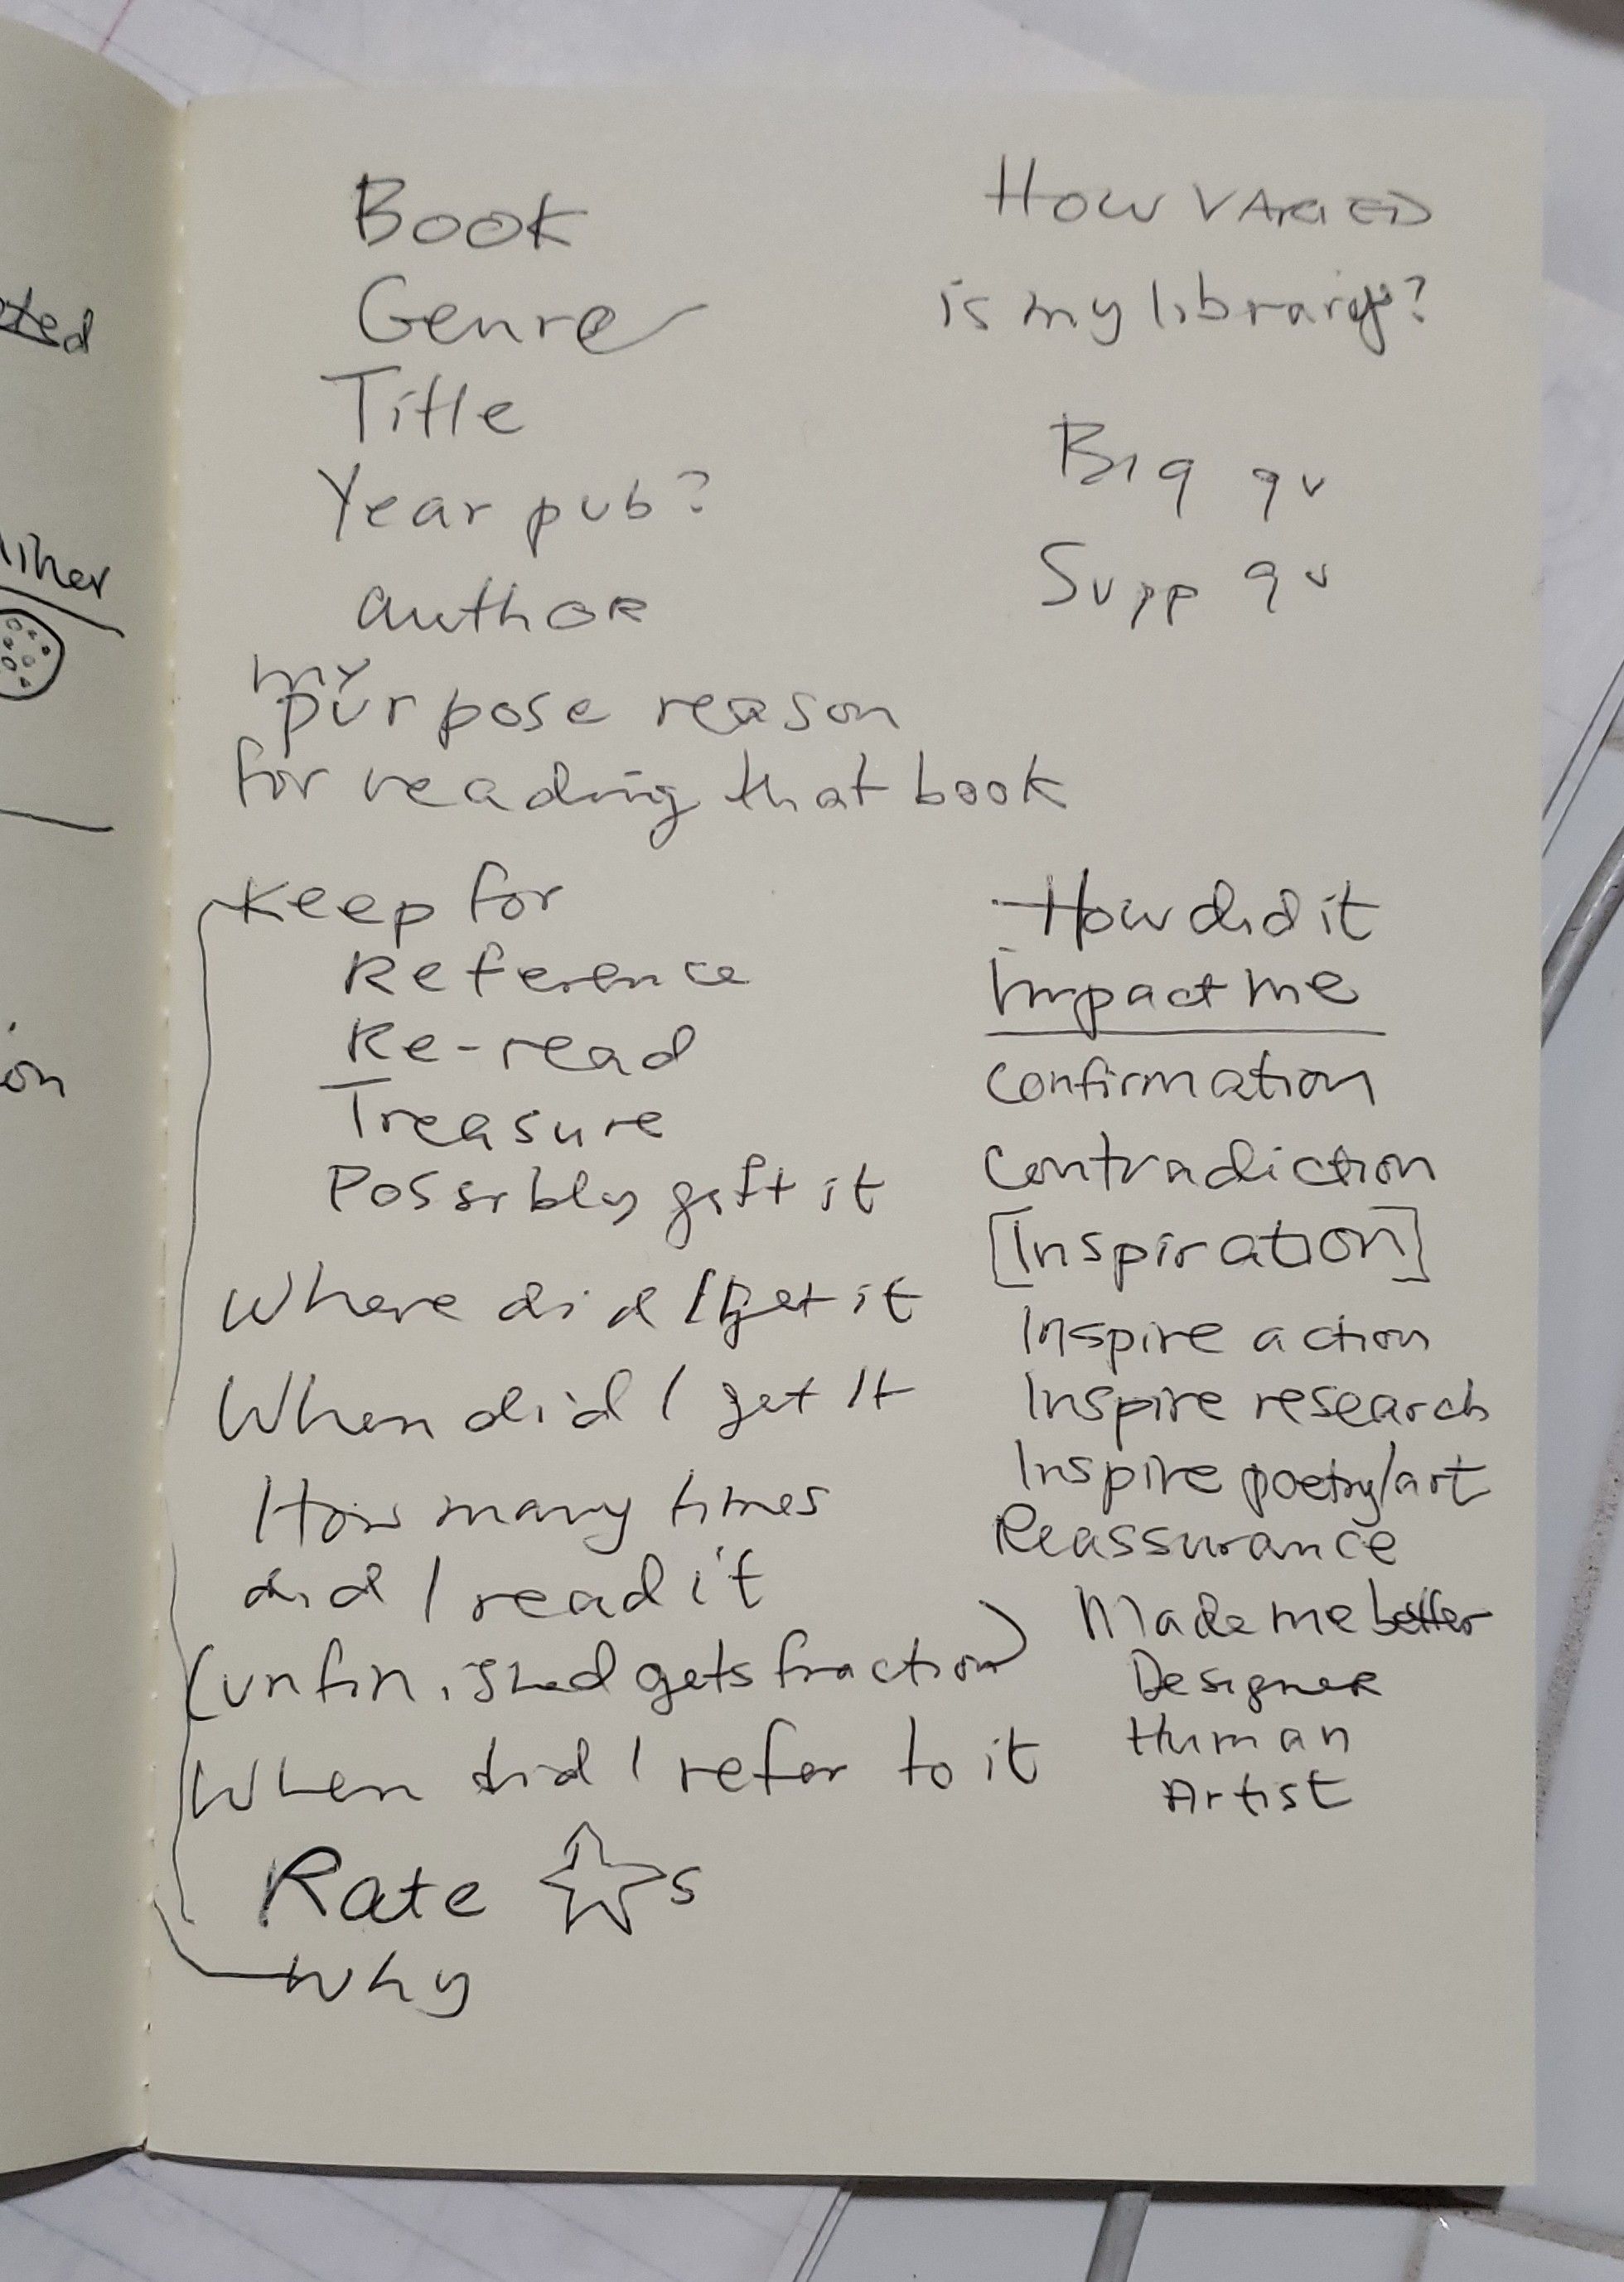 Book
Genre
Title
Year pub?
author
my
purpose reason
for reading that book
Keep for
Reference
Re-read
Treasure
Possibly gift it
Where did I get it
When did I get It
How many times
did I read it
(unfinished gets fraction)
When did I refer to it
Rate ☆s
Why
How VARIED
is my library?
Big qu
Supp qu
How did it
impact me
Confirmation
Contradiction
[Inspiration]
Inspire action
Inspire research
Inspire poetry/art
Reassurance
Made me better
Designer
Human
Artist
on